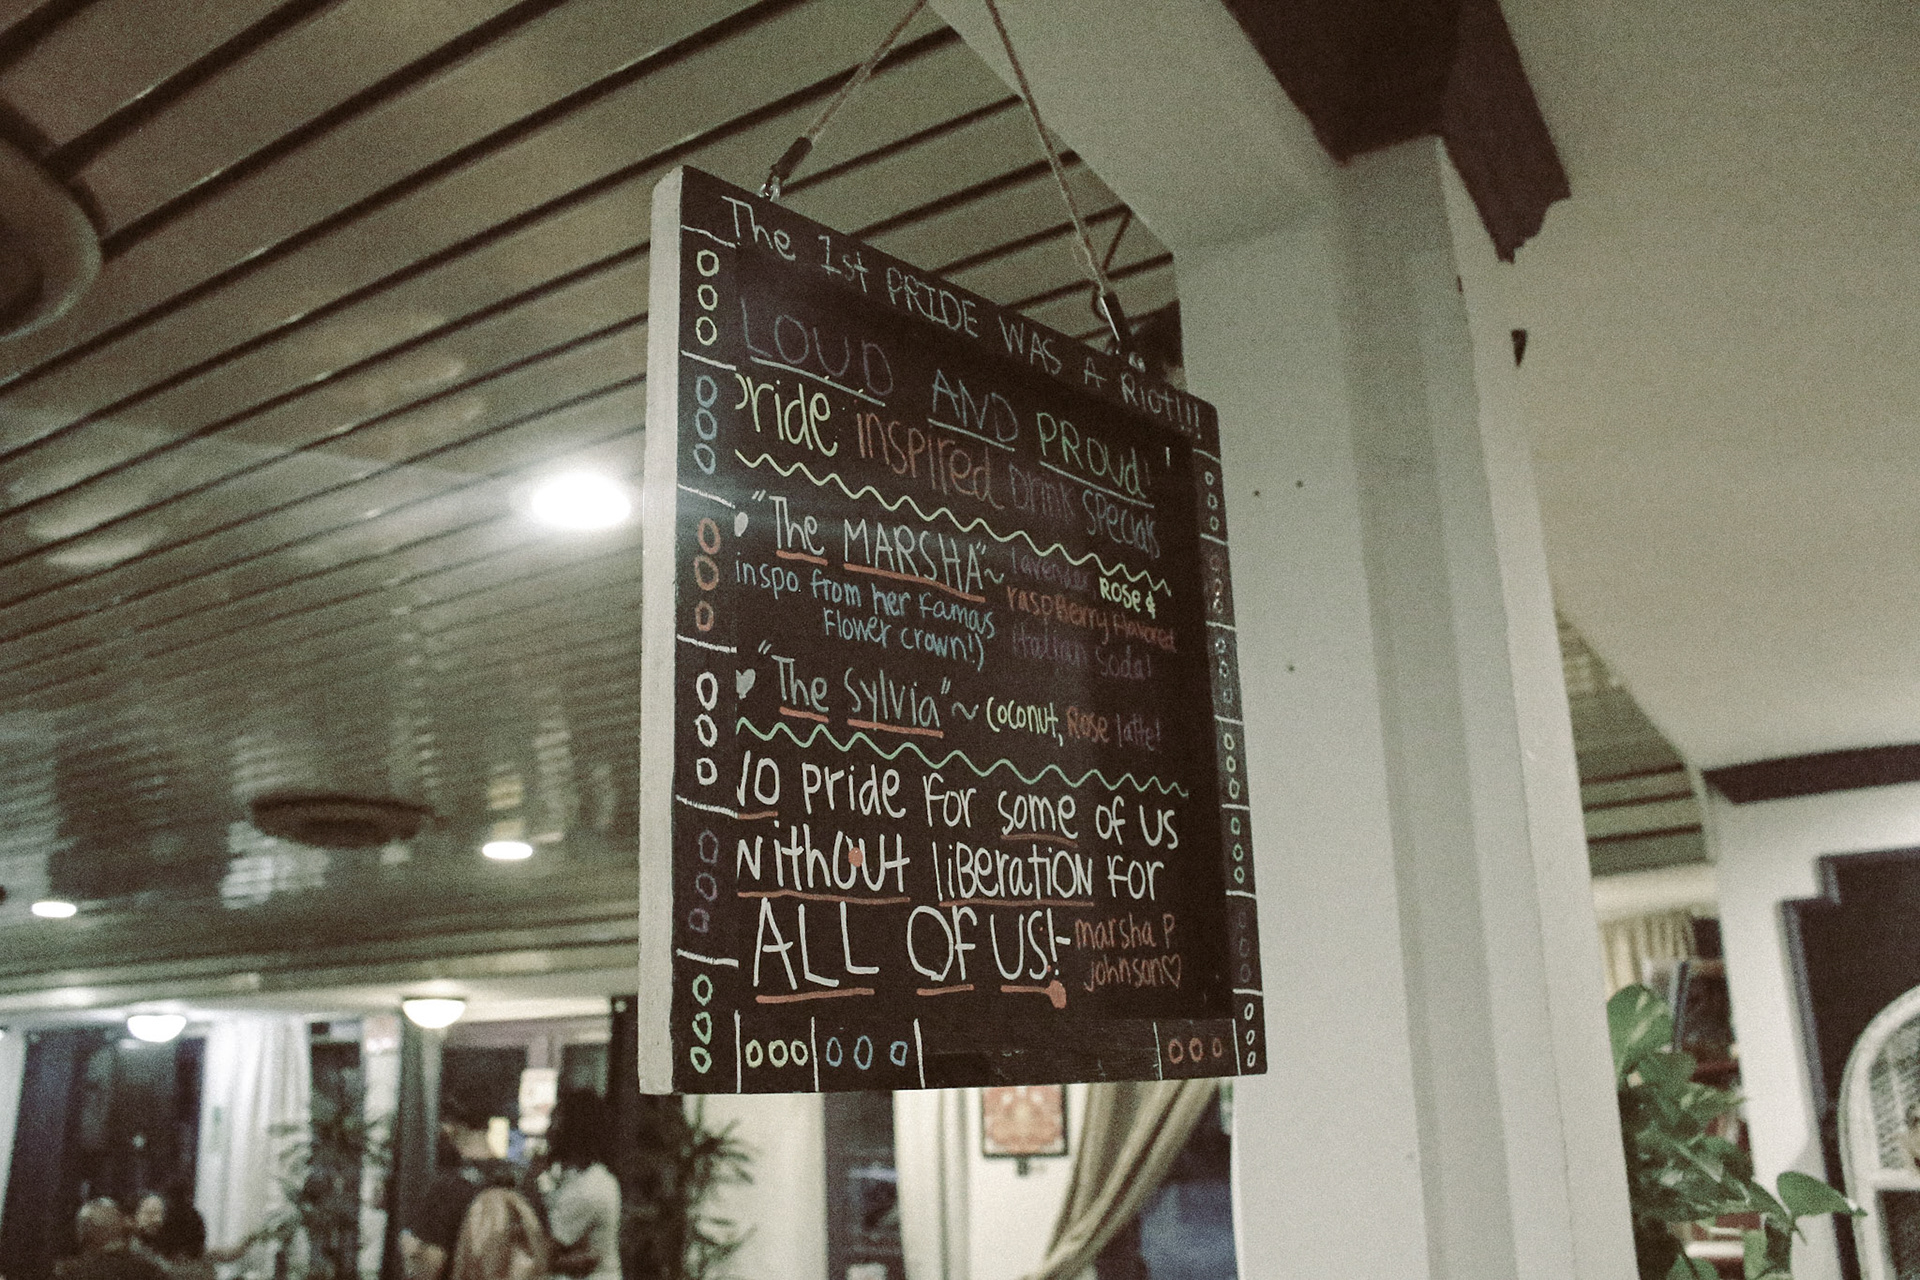 The 1st PRIDE WAS A Riot!!!
LOUD AND PROUD!
pride inspired Drink specials
"The MARSHA" ~ lavender Rose &
inspo. from her famous raspBerry flavored
Flower crown!) italian soda!
"The Sylvia" ~ coconut, Rose latte!
NO pride for some of us
without liBeration for
ALL OF US! - marsha P.
johnson♡